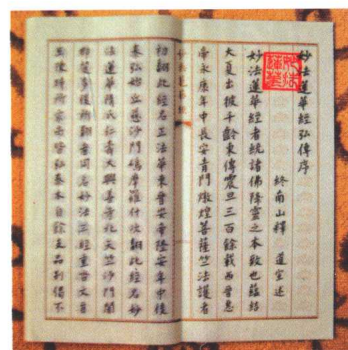 妙法蓮華經弘傳序
終南山釋 道宣述
妙法蓮華經者統諸佛降靈之本致也蘊結
大夏出彼千齡東傳震旦三百餘載西晉惠
帝永康年中長安青門燉煌菩薩竺法護者
初翻此經名正法華東晉安帝隆安年中後
秦弘始龜茲沙門鳩摩羅什次翻此經名妙
法蓮華隋氏仁壽大興善寺北天竺沙門闍
那笈多後所翻者同名妙法三經重沓文旨
互陳時所宗尚皆弘秦本自餘支品別偈不